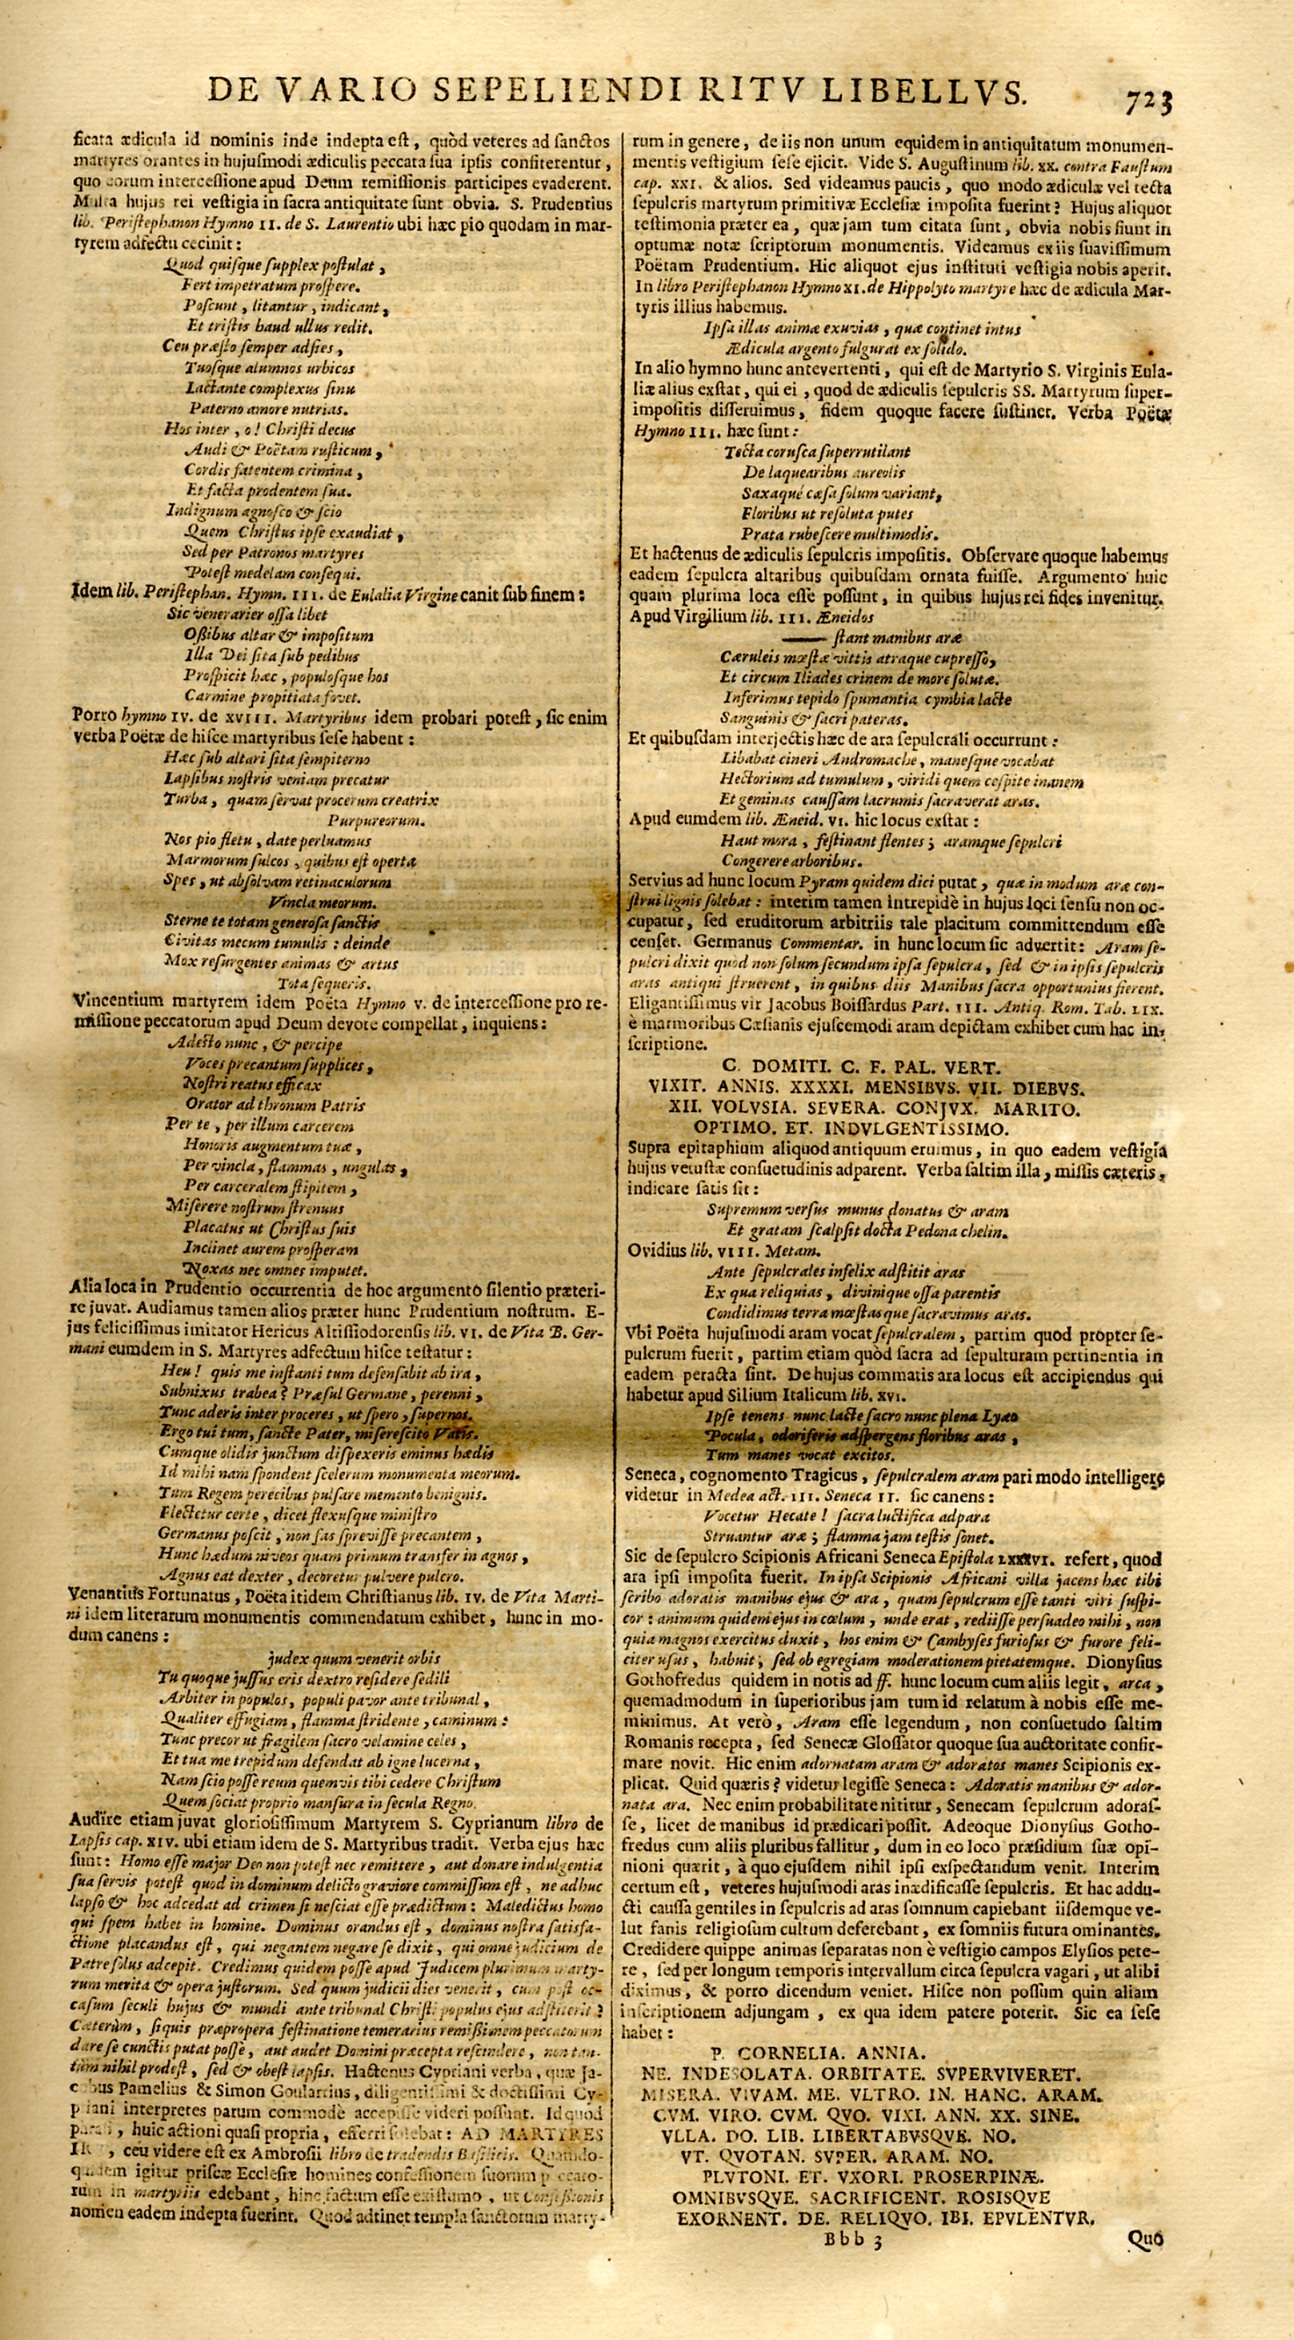 DE VARIO SEPELIENDI RITV LIBELLVS. 723
ficata ædicula id nominis inde indepta est, quòd veteres ad sanctos
martyres orantes in hujusmodi ædiculis peccata sua ipsis confiterentur,
quo eorum intercessione apud Deum remissionis participes evaderent.
Multa hujus rei vestigia in sacra antiquitate sunt obvia. S. Prudentius
lib. Peristephanon Hymno II. de S. Laurentio ubi hæc pio quodam in mar-
tyrem adfectu cecinit:
Quod quisque supplex postulat,
Fert impetratum prospere.
Poscunt, litantur, indicant,
Et tristis haud ullus redit.
Ceu præsto semper adsies,
Tuosque alumnos urbicos
Lactante complexus sinu
Paterno amore nutrias.
Hos inter, o! Christi decus
Audi & Poëtam rusticum,
Cordis fatentem crimina,
Et facta prodentem sua.
Indignum agnosco & scio
Quem Christus ipse exaudiat,
Sed per Patronos martyres
Potest medelam consequi.
Idem lib. Peristephan. Hymn. III. de Eulalia Virgine canit sub finem:
Sic venerarier ossa libet
Ossibus altar & impositum
Illa Dei sita sub pedibus
Prospicit hæc, populosque hos
Carmine propitiata fovet.
Porro hymno IV. de XVIII. Martyribus idem probari potest, sic enim
verba Poëtæ de hisce martyribus sese habent:
Hæc sub altari sita sempiterno
Lapsibus nostris veniam precatur
Turba, quam servat procerum creatrix
Purpureorum.
Nos pio fletu, date perluamus
Marmorum sulcos, quibus est operta
Spes, ut absolvam retinaculorum
Vincla meorum.
Sterne te totam generosa sanctis
Civitas mecum tumulis: deinde
Mox resurgentes animas & artus
Tota sequeris.
Vincentium martyrem idem Poëta Hymno V. de intercessione pro re-
missione peccatorum apud Deum devote compellat, inquiens:
Adesto nunc, & percipe
Voces precantum supplices,
Nostri reatus efficax
Orator ad thronum Patris
Per te, per illum carcerem
Honoris augmentum tuæ,
Per vincla, flammas, ungulas,
Per carceralem stipitem,
Miserere nostrum strenuus
Placatus ut Christus suis
Inclinet aurem prosperam
Noxas nec omnes imputet.
Alia loca in Prudentio occurrentia de hoc argumento silentio præteri-
re juvat. Audiamus tamen alios præter hunc Prudentium nostrum. E-
jus felicissimus imitator Hericus Altissiodorensis lib. VI. de Vita B. Ger-
mani eumdem in S. Martyres adfectum hisce testatur:
Heu! quis me instanti tum defensabit ab ira,
Subnixus trabea? Præsul Germane, perenni,
Tunc aderis inter proceres, ut spero, supernos.
Ergo tui tum, sancte Pater, miserescito Vatis.
Cumque olidis junctum dispexeris eminus hædis
Id mihi nam spondent scelerum monumenta meorum.
Tum Regem perecibus pulsare memento benignis.
Flectetur certe, dicet flexusque ministro
Germanus poscit, non fas sprevisse precantem,
Hunc hædum niveos quam primum transfer in agnos,
Agnus eat dexter, decoretur pulvere pulcro.
Venantius Fortunatus, Poëta itidem Christianus lib. IV. de Vita Marti-
ni idem literarum monumentis commendatum exhibet, hunc in mo-
dum canens:
judex quum venerit orbis
Tu quoque jussus eris dextro residere sedili
Arbiter in populos, populi pavor ante tribunal,
Qualiter effugiam, flamma stridente, caminum:
Tunc precor ut fragilem sacro velamine celes,
Et tua me trepidum defendat ab igne lucerna,
Nam scio posse reum quemvis tibi cedere Christum
Quem sociat proprio mansura in secula Regno.
Audire etiam juvat gloriosissimum Martyrem S. Cyprianum libro de
Lapsis cap. XIV. ubi etiam idem de S. Martyribus tradit. Verba ejus hæc
sunt: Homo esse major Deo non potest nec remittere, aut donare indulgentia
sua servis potest quod in dominum delicto graviore commissum est, ne adhuc
lapso & hoc adcedat ad crimen si nesciat esse prædictum: Maledictus homo
qui spem habet in homine. Dominus orandus est, dominus nostra satisfa-
ctione placandus est, qui negantem negare se dixit, qui omne judicium de
Patre solus adcepit. Credimus quidem posse apud Judicem plurimum marty-
rum merita & opera justorum. Sed quum judicii dies venerit, cum post oc-
casum seculi hujus & mundi ante tribunal Christi populus ejus adstiterit?
Cæterùm, si quis præpropera festinatione temerarius remissionem peccatorum
dare se cunctis putat posse, aut audet Domini præcepta rescindere, non tan-
tùm nihil prodest, sed & obest lapsis. Hactenus Cypriani verba, quæ Ja-
cobus Pamelius & Simon Goulartius, diligentissimi & doctissimi Cy-
priani interpretes parum commodè accepisse videri possunt. Id quod
huic actioni quasi propria, efferri solebat: AD MARTYRES
ceu videre est ex Ambrosii libro de tradendis Basilicis. Quando-
quidem igitur priscæ Ecclesiæ homines confessionem suorum peccato-
rum in martyriis edebant, hinc factum esse existumo, ut Confessionis
nomen eadem indepta fuerint. Quod adtinet templa sanctorum marty-
rum in genere, de iis non unum equidem in antiquitatum monumen-
mentis vestigium sese ejicit. Vide S. Augustinum lib. XX. contra Faustum
cap. XXI. & alios. Sed videamus paucis, quo modo ædiculæ vel tecta
sepulcris martyrum primitivæ Ecclesiæ imposita fuerint? Hujus aliquot
testimonia præter ea, quæ jam tum citata sunt, obvia nobis fiunt in
optumæ notæ scriptorum monumentis. Videamus ex iis suavissimum
Poëtam Prudentium. Hic aliquot ejus instituti vestigia nobis aperit.
In libro Peristephanon Hymno XI. de Hippolyto martyre hæc de ædicula Mar-
tyris illius habemus.
Ipsa illas animæ exuvias, quæ continet intus
Ædicula argento fulgurat ex solido.
In alio hymno hunc antevertenti, qui est de Martyrio S. Virginis Eula-
liæ alius exstat, qui ei, quod de ædiculis sepulcris SS. Martyrum super-
impositis disseruimus, fidem quoque facere sustinet. Verba Poëtæ
Hymno III. hæc sunt:
Tecta corusca superrutilant
De laquearibus aureolis
Saxaqué cæsa solum variant,
Floribus ut resoluta putes
Prata rubescere multimodis.
Et hactenus de ædiculis sepulcris impositis. Observare quoque habemus
eadem sepulcra altaribus quibusdam ornata fuisse. Argumento huic
quam plurima loca esse possunt, in quibus hujus rei fides invenitur.
Apud Virgilium lib. III. Æneidos
—— stant manibus aræ
Cæruleis mœstæ vittis atraque cupresso,
Et circum Iliades crinem de more solutæ.
Inferimus tepido spumantia cymbia lacte
Sanguinis & sacri pateras.
Et quibusdam interjectis hæc de ara sepulcrali occurrunt:
Libabat cineri Andromache, manesque vocabat
Hectorium ad tumulum, viridi quem cespite inanem
Et geminas caussam lacrumis sacraverat aras.
Apud eumdem lib. Æneid. VI. hic locus exstat:
Haut mora, festinant flentes; aramque sepulcri
Congerere arboribus.
Servius ad hunc locum Pyram quidem dici putat, quæ in modum aræ con-
strui lignis solebat: interim tamen intrepidè in hujus loci sensu non oc-
cupatur, sed eruditorum arbitriis tale placitum committendum esse
censet. Germanus Commentar. in hunc locum sic advertit: Aram se-
pulcri dixit quod non solum secundum ipsa sepulcra, sed & in ipsis sepulcris
aras antiqui struerent, in quibus diis Manibus sacra opportunius fierent.
Eligantissimus vir Jacobus Boissardus Part. III. Antiq. Rom. Tab. LIX.
è marmoribus Cæsianis ejuscemodi aram depictam exhibet cum hac in-
scriptione.
C. DOMITI. C. F. PAL. VERT.
VIXIT. ANNIS. XXXXI. MENSIBVS. VII. DIEBVS.
XII. VOLVSIA. SEVERA. CONJVX. MARITO.
OPTIMO. ET. INDVLGENTISSIMO.
Supra epitaphium aliquod antiquum eruimus, in quo eadem vestigia
hujus vetustæ consuetudinis adparent. Verba saltim illa, missis cæteris,
indicare satis sit:
Supremum versus munus donatus & aram
Et gratam scalpsit docta Pedona chelin.
Ovidius lib. VIII. Metam.
Ante sepulcrales infelix adstitit aras
Ex qua reliquias, divinique ossa parentis
Condidimus terra mœstasque sacravimus aras.
Vbi Poëta hujusmodi aram vocat sepulcralem, partim quod propter se-
pulcrum fuerit, partim etiam quòd sacra ad sepulturam pertinentia in
eadem peracta sint. De hujus commatis ara locus est accipiendus qui
habetur apud Silium Italicum lib. XVI.
Ipse tenens nunc lacte sacro nunc plena Lyæo
Pocula, odoriferis adspergens floribus aras,
Tum manes vocat excitos.
Seneca, cognomento Tragicus, sepulcralem aram pari modo intelligere
videtur in Medea act. III. Seneca II. sic canens:
Vocetur Hecate! sacra luctifica adpara
Struantur aræ; flamma jam testis sonet.
Sic de sepulcro Scipionis Africani Seneca Epistola LXXXVI. refert, quod
ara ipsi imposita fuerit. In ipsa Scipionis Africani villa jacens hæc tibi
scribo adoratis manibus ejus & ara, quam sepulcrum esse tanti viri suspi-
cor: animum quidem ejus in cœlum, unde erat, rediisse persuadeo mihi, non
quia magnos exercitus duxit, hos enim & Cambyses furiosus & furore feli-
citer usus, habuit; sed ob egregiam moderationem pietatemque. Dionysius
Gothofredus quidem in notis ad ff. hunc locum cum aliis legit, arca,
quemadmodum in superioribus jam tum id relatum à nobis esse me-
minimus. At verò, Aram esse legendum, non consuetudo saltim
Romanis recepta, sed Senecæ Glossator quoque sua auctoritate confir-
mare novit. Hic enim adornatam aram & adoratos manes Scipionis ex-
plicat. Quid quæris? videtur legisse Seneca: Adoratis manibus & ador-
nata ara. Nec enim probabilitate nititur, Senecam sepulcrum adoras-
se, licet de manibus id prædicari possit. Adeoque Dionysius Gotho-
fredus cum aliis pluribus fallitur, dum in eo loco præsidium suæ opi-
nioni quærit, à quo ejusdem nihil ipsi exspectandum venit. Interim
certum est, veteres hujusmodi aras inædificasse sepulcris. Et hac addu-
cti caussa gentiles in sepulcris ad aras somnum capiebant iisdemque ve-
lut fanis religiosum cultum deferebant, ex somniis futura ominantes.
Credidere quippe animas separatas non è vestigio campos Elysios pete-
re, sed per longum temporis intervallum circa sepulcra vagari, ut alibi
diximus, & porro dicendum veniet. Hisce non possum quin aliam
inscriptionem adjungam, ex qua idem patere poterit. Sic ea sese
habet:
P. CORNELIA. ANNIA.
NE. INDESOLATA. ORBITATE. SVPERVIVERET.
MISERA. VIVAM. ME. VLTRO. IN. HANC. ARAM.
CVM. VIRO. CVM. QVO. VIXI. ANN. XX. SINE.
VLLA. DO. LIB. LIBERTABVSQVE. NO.
VT. QVOTAN. SVPER. ARAM. NO.
PLVTONI. ET. VXORI. PROSERPINÆ.
OMNIBVSQVE. SACRIFICENT. ROSISQVE
EXORNENT. DE. RELIQVO. IBI. EPVLENTVR.
Bbb 3 Quo